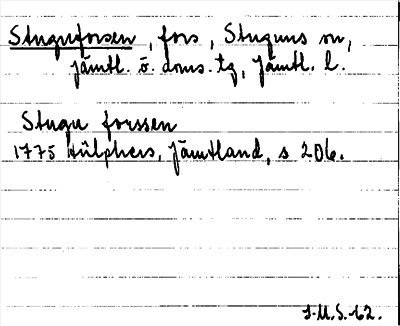 Stuguforsen, fors, Stuguns sn,
Jämtl. ö. doms. tg, Jämtl. l.
Stugu forssen
1775 Hülphers, Jämtland, s 206.
I.M.S. 62.